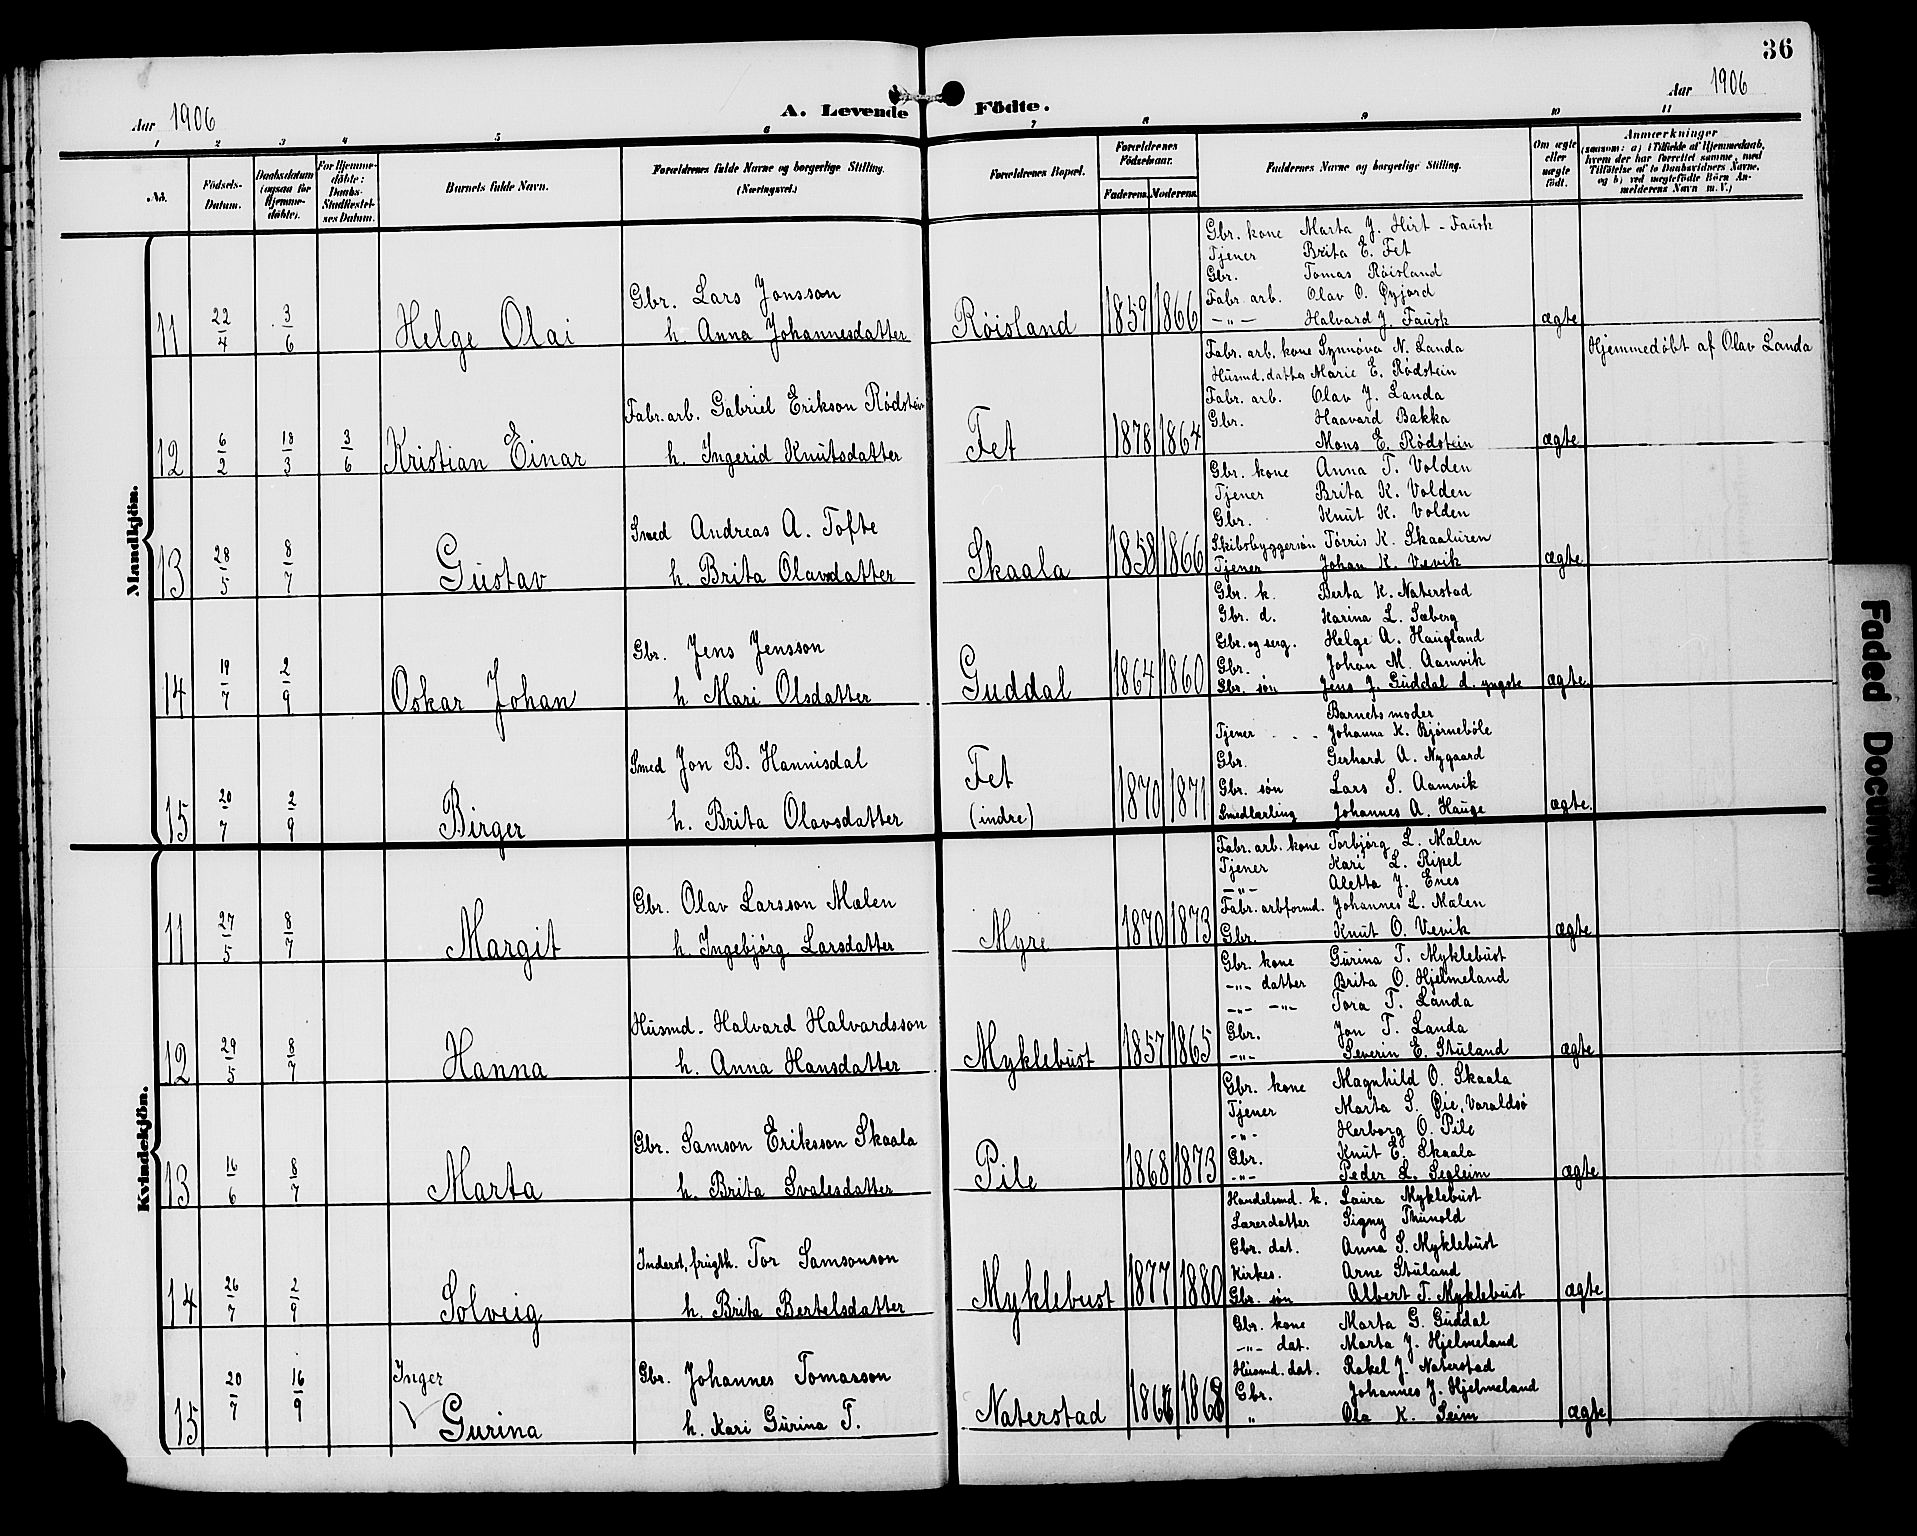 36
Aar 1906
A. Levende Födte.
Aar 1906
1 2 3 4 5 6 7 8 9 10 11
No.
Födsels-Datum.
Daabsdatum (ogsaa for Hjemme-döbte).
For Hjemme-döbte: Daabs-Stadfæstel-ses Datum.
Barnets fulde Navn.
Forældrenes fulde Navne og borgerlige Stilling. (Næringsvei.)
Forældrenes Bopæl.
Forældrenes Födselsaar.
Faderens. Moderens.
Faddernes Navne og borgerlige Stilling.
Om ægte eller uægte födt.
Anmærkninger
(saasom: a) i Tilfælde af Hjemmedaab, hvem der har forrettet samme, med Tilföielse af to Daabsvidners Navne, og b) ved uægtefödte Börn An-melderens Navn m. V.)
Mandkjön.
Gbr. kone Marta J. Hirt - Fausk
Tjener Brita E. Fet
Gbr. Tomas Röisland
Fabr. arb. Olav O. Øyjord
-"- Halvard J. Fausk
11 22/4 3/6 Helge Olai
Gbr. Lars Jonsson
h. Anna Johannesdatter
Röisland 1859 1866 ægte
Fabr. arb. kone Synnöva N. Landa
Husmd. datter Marie E. Rödstein
Fabr. arb. Olav J. Landa
Gbr. Haavard Bakka
Mons E. Rödstein
12 6/2 18/3 3/6 Kristian Einar
Fabr. arb. Gabriel Erikson Rödstein
h. Ingerid Knutsdatter
Fet 1878 1864 ægte
Hjemmedöbt af Olav Landa
Gbr. kone Anna T. Volden
Tjener Brita K. Volden
Gbr. Knut K. Volden
Skibsbyggersön Törris K. Skaaluren
Tjener Johan K. Vevik
13 28/5 8/7 Gustav
Smed Andreas A. Tofte
h. Brita Olavsdatter
Skaala 1858 1866 ægte
Gbr. k. Berta K. Naterstad
Gbr. d. Karina L. Sæberg
Gbr. og serg. Helge A. Haugland
Gbr. Johan M. Aamvik
Gbr. sön Jens J. Guddal d. yngste
14 19/7 2/9 Oskar Johan
Gbr. Jens Jensson
h Mari Olsdatter
Guddal 1864 1860 ægte
Barnets moder
Tjener Johanna K. Bjørneböle
Gbr. Gerhard A. Nygaard
Gbr. sön Lars S. Aamvik
Smedlærling Johannes A. Hauge
15 20/7 2/9 Birger
Smed Jon B. Hannisdal
h. Brita Olavsdatter
Fet (indre) 1870 1871 ægte
Kvindekjön.
Fabr. arb. kone Torbjörg L. Mælen
Tjener Kari L. Ripel
-"- Aletta J. Enes
Fabr. arbformd. Johannes L. Mælen
Gbr. Knut O. Vevik
11 27/5 8/7 Margit
Gbr. Olav Larsson Mælen
h. Ingebjörg Larsdatter
Myre 1870 1873 ægte
Gbr. kone Gurina T. Myklebust
-"- datter Brita O. Hjelmeland
-"- -"- Tora T. Landa
Gbr. Jon T. Landa
-"- Severin E. Stuland
12 29/5 8/7 Hanna
Husmd. Halvard Halvardsson
h. Anna Hansdatter
Myklebust 1857 1865 ægte
Gbr. kone Magnhild O. Skaala
Tjener Marta S. Øie, Varaldsö
-"- Herborg O. Pile
Gbr. Knut E. Skaala
-"- Peder L. Segleim
13 16/6 8/7 Marta
Gbr. Samson Eriksson Skaala
h. Brita Svalesdatter
Pile 1868 1873 ægte
Handelsmd. k. Laura Myklebust
Lærerdatter Signy Thunold
Gbr. dat. Anna S. Myklebust
Kirkes. Arne Stuland
Gbr. sön Albert T. Myklebust
14 26/7 2/9 Solveig
Inderst, frugth. Tor Samsonson
h. Brita Bertelsdatter
Myklebust 1877 1880 ægte
Gbr. kone Marta G. Guddal
-"- dat. Marta J. Hjelmeland
Husmd. dat. Rakel J. Naterstad
Gbr. Johannes J. Hjelmeland
" Ola K. Seim
15 20/7 16/9 Inger Gurina
Gbr. Johannes Tomasson
h. Kari Gurina T.
Naterstad 1868 ægte
Faded Document